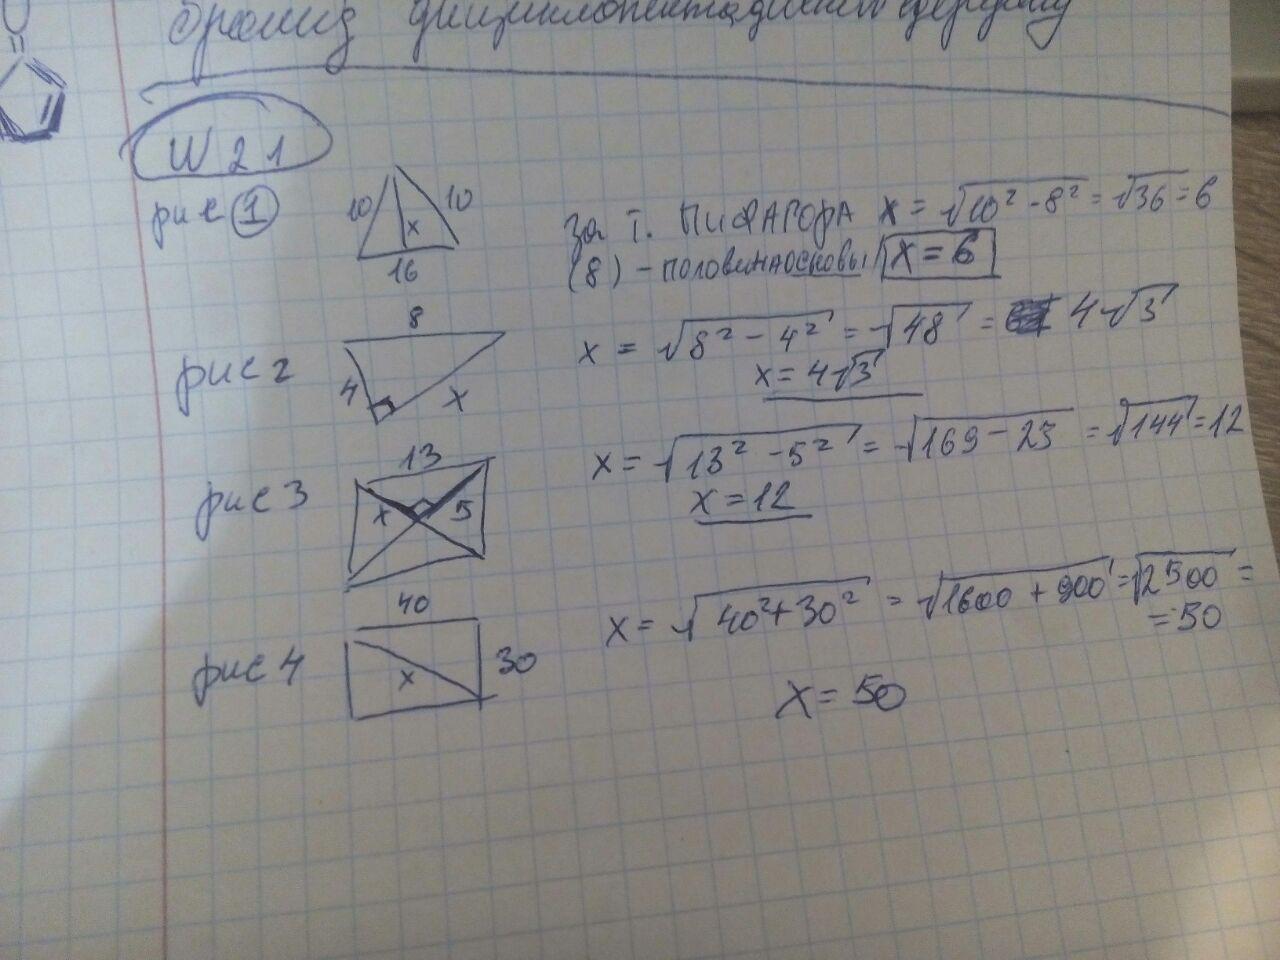 бромид дициклопентадиенил
W 2 1
рис 1
10
10
x
16
за т. ПИФАГОРА x = √10² - 8² = √36 = 6
(8) - половина основы x = 6
рис 2
8
4
x
x = √8² - 4² = √48 = 4√3
x = 4√3
рис 3
13
x
5
x = √13² - 5² = √169 - 25 = √144 = 12
x = 12
рис 4
40
x
30
x = √40² + 30² = √1600 + 900 = √2500 =
= 50
x = 50